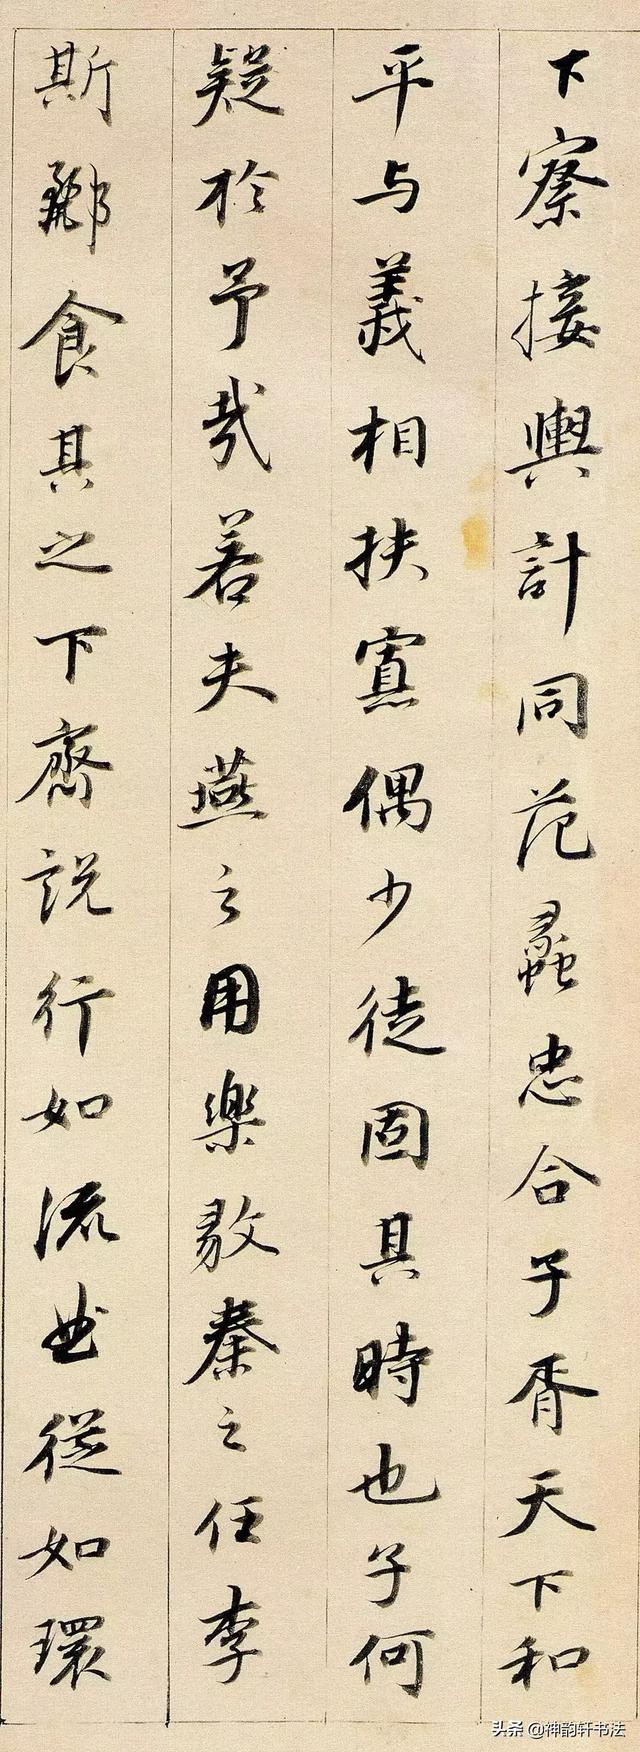 下察接輿計同范蠡忠合子胥天下和
平与義相扶寡偶少徒固其時也子何
疑於予哉若夫燕之用樂毅秦之任李
斯酈食其之下齊説行如流曲從如環
头条 @神韵轩书法